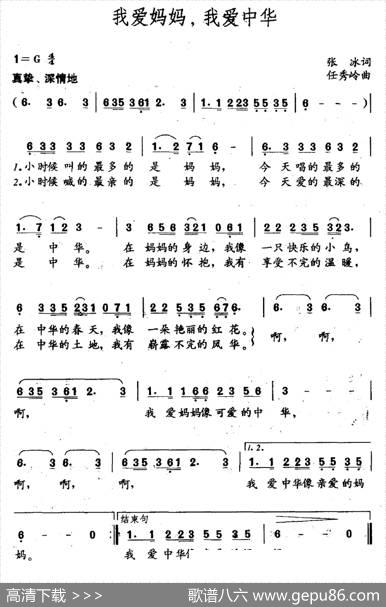 我爱妈妈，我爱中华
1=G 4/4
张 冰词
真挚、深情地
任秀岭曲
(6. 3 6. 3 | 635 361 2. 3 | 1. 1 223 55 35 |
6 - - -) |
6 33 33 63 2 | 1. 2 71 6 - | 6. 3 33 63 2 |
1.小时候叫的最多的 是 妈妈， 今天唱的最多的
2.小时候喊的最亲的 是 妈妈， 今天爱的最深的
1. 7 12 3 - 3 | 656 321 01 6 | 2. 2 235 323. |
是 中华。 在 妈妈的身边，我像 一只快乐的小鸟，
是 中华。 在 妈妈的怀抱，我有 享受不完的温暖，
6 335 231 071 | 2. 5 535 676. | 6. 3 6. 3 |
在 中华的春天，我像 一朵艳丽的红花。 啊， 啊，
在 中华的土地，我有 崭露不完的风华。
635 361 2. 3 | 1. 1 166 23 56 | 3 - - - |
啊， 我 爱妈妈像可爱的中 华，
1. 2.
6. 3 6. 3 | 635 361 2. 3 | 1. 1 223 55 35 |
啊， 啊， 啊， 我 爱中华像亲爱的妈
结束句
6 - - 0 :| 1. 1 223 5. 35 | 6 - - - | 6 - - - ||
妈。 我 爱中华
高清下载 >>>
歌谱八六 www.gepu86.com